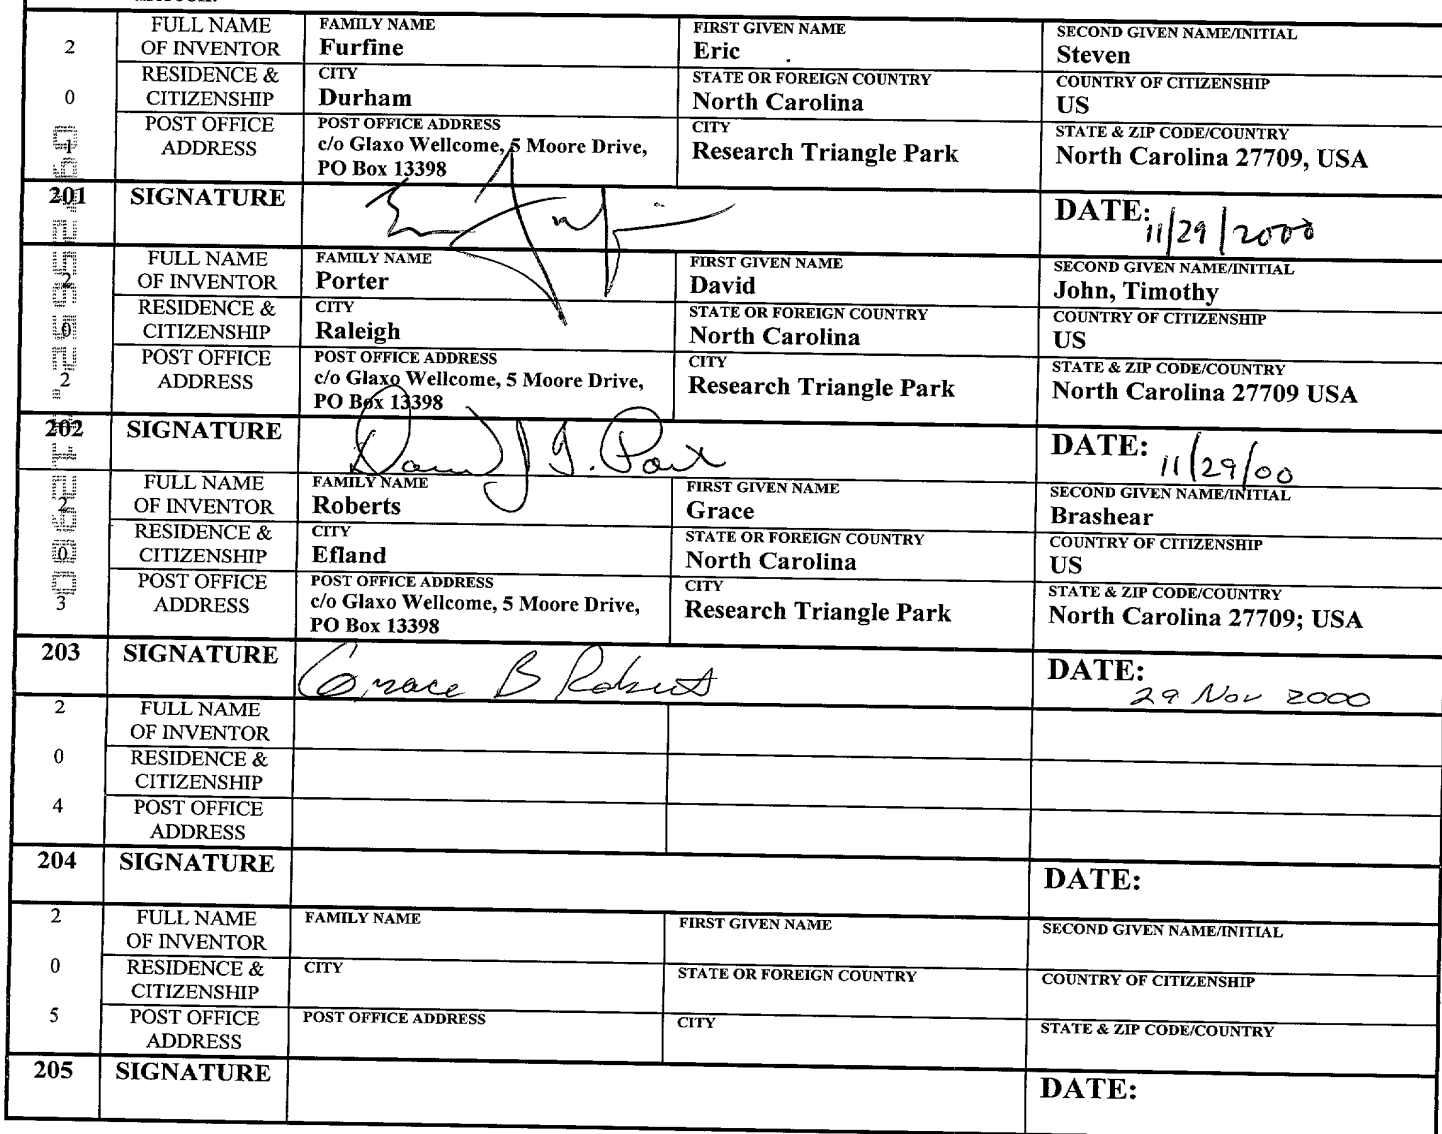 2 FULL NAME OF INVENTOR FAMILY NAME Furfine FIRST GIVEN NAME Eric SECOND GIVEN NAME/INITIAL Steven
0 RESIDENCE & CITIZENSHIP CITY Durham STATE OR FOREIGN COUNTRY North Carolina COUNTRY OF CITIZENSHIP US
1 POST OFFICE ADDRESS POST OFFICE ADDRESS c/o Glaxo Wellcome, 5 Moore Drive, PO Box 13398 CITY Research Triangle Park STATE & ZIP CODE/COUNTRY North Carolina 27709, USA
201 SIGNATURE DATE: 11/29/2000
2 FULL NAME OF INVENTOR FAMILY NAME Porter FIRST GIVEN NAME David SECOND GIVEN NAME/INITIAL John, Timothy
0 RESIDENCE & CITIZENSHIP CITY Raleigh STATE OR FOREIGN COUNTRY North Carolina COUNTRY OF CITIZENSHIP US
2 POST OFFICE ADDRESS POST OFFICE ADDRESS c/o Glaxo Wellcome, 5 Moore Drive, PO Box 13398 CITY Research Triangle Park STATE & ZIP CODE/COUNTRY North Carolina 27709 USA
202 SIGNATURE DATE: 11/29/00
2 FULL NAME OF INVENTOR FAMILY NAME Roberts FIRST GIVEN NAME Grace SECOND GIVEN NAME/INITIAL Brashear
0 RESIDENCE & CITIZENSHIP CITY Efland STATE OR FOREIGN COUNTRY North Carolina COUNTRY OF CITIZENSHIP US
3 POST OFFICE ADDRESS POST OFFICE ADDRESS c/o Glaxo Wellcome, 5 Moore Drive, PO Box 13398 CITY Research Triangle Park STATE & ZIP CODE/COUNTRY North Carolina 27709; USA
203 SIGNATURE Grace B Roberts DATE: 29 Nov 2000
2 FULL NAME OF INVENTOR
0 RESIDENCE & CITIZENSHIP
4 POST OFFICE ADDRESS
204 SIGNATURE DATE:
2 FULL NAME OF INVENTOR FAMILY NAME FIRST GIVEN NAME SECOND GIVEN NAME/INITIAL
0 RESIDENCE & CITIZENSHIP CITY STATE OR FOREIGN COUNTRY COUNTRY OF CITIZENSHIP
5 POST OFFICE ADDRESS POST OFFICE ADDRESS CITY STATE & ZIP CODE/COUNTRY
205 SIGNATURE DATE: